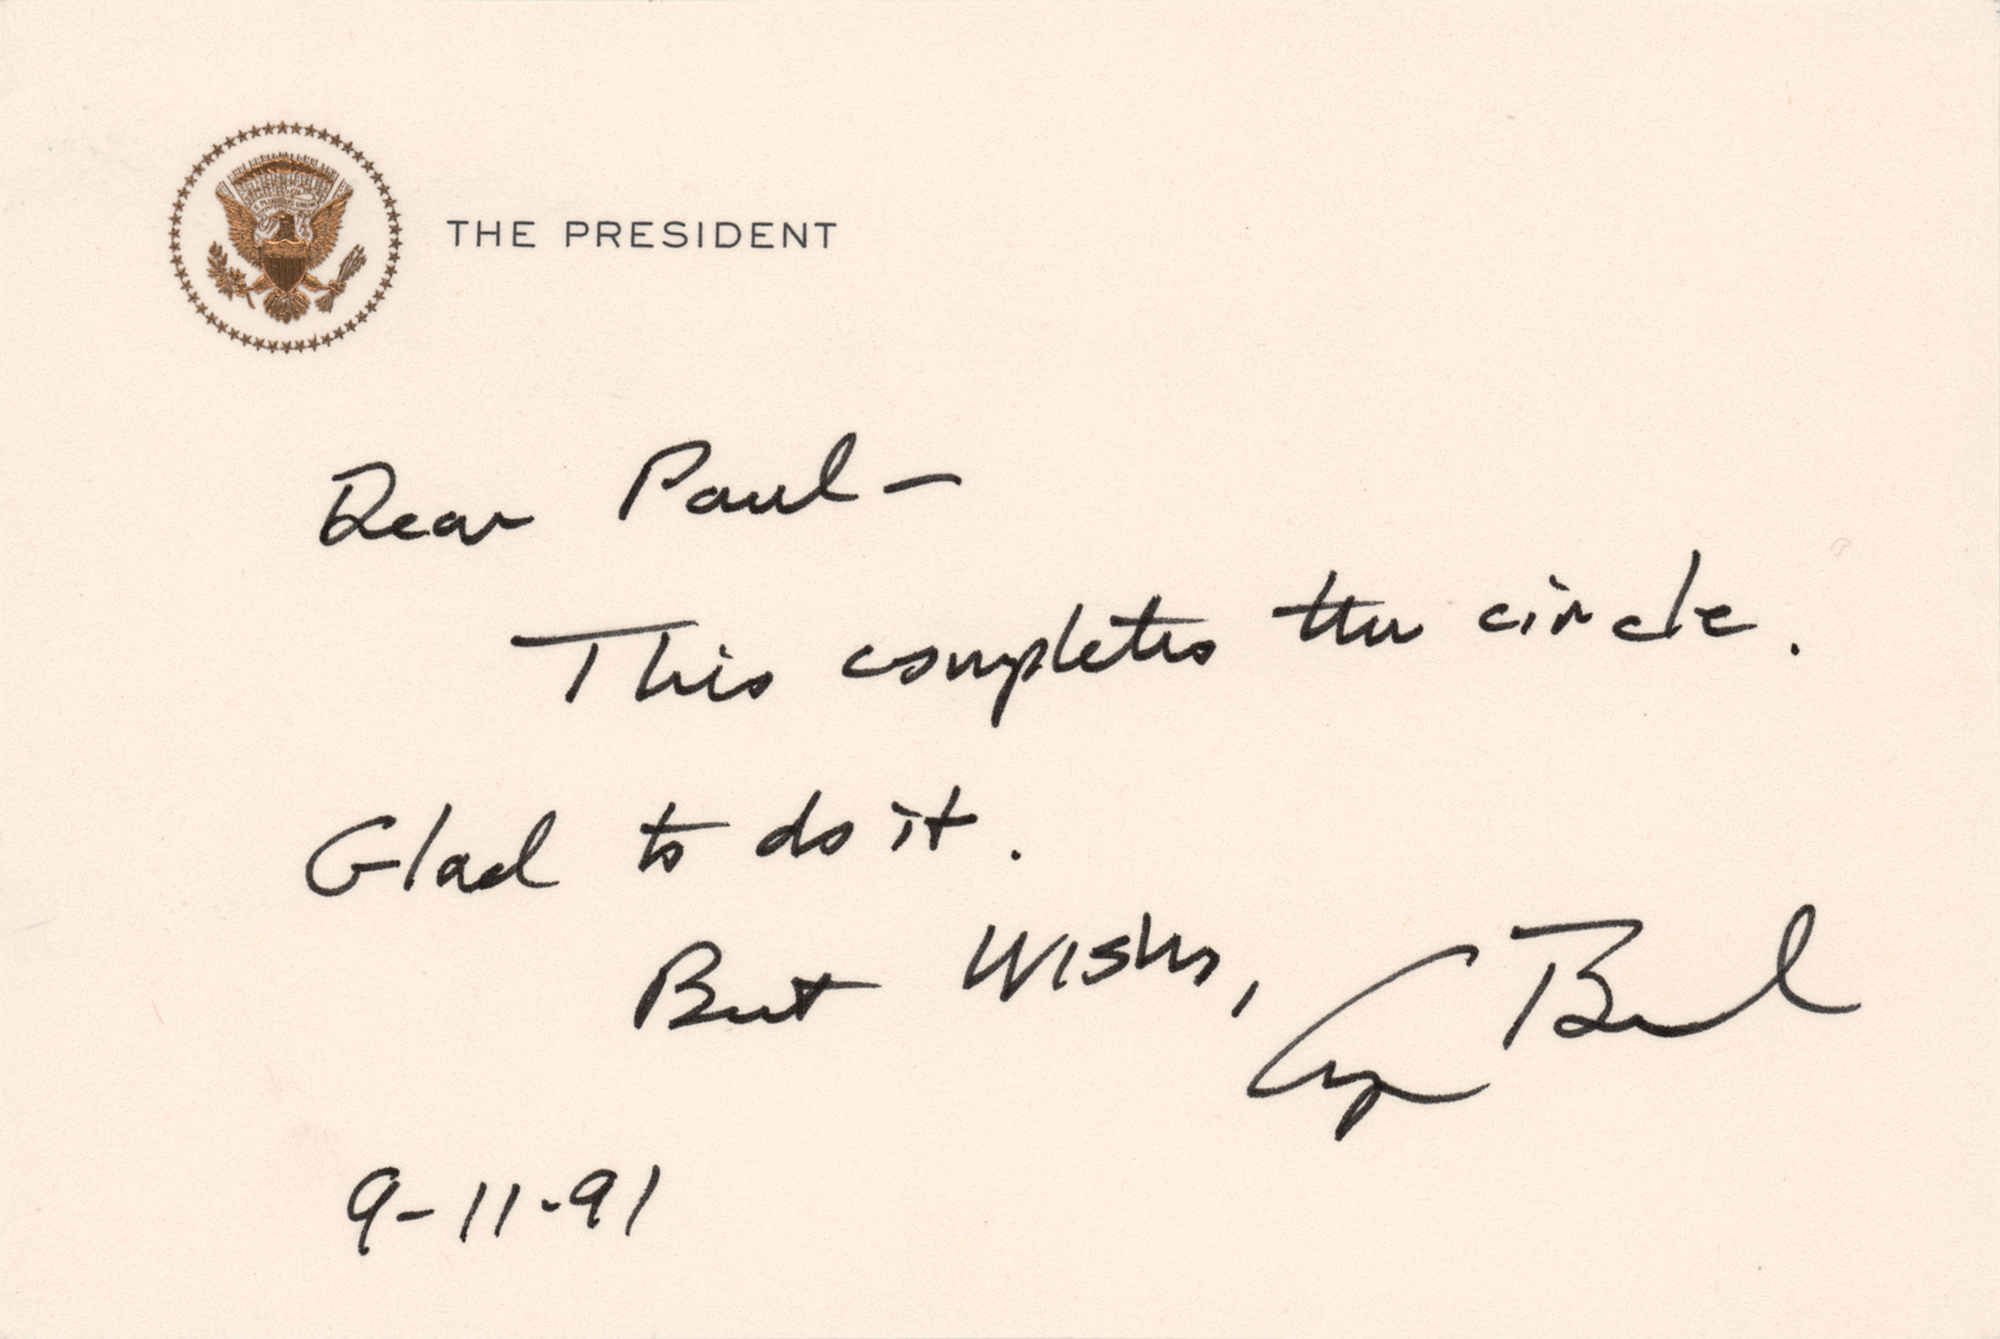 E PLURIBUS UNUM
THE PRESIDENT
Dear Paul —
This completes the circle.
Glad to do it.
Best Wishes,
G Bush
9-11-91